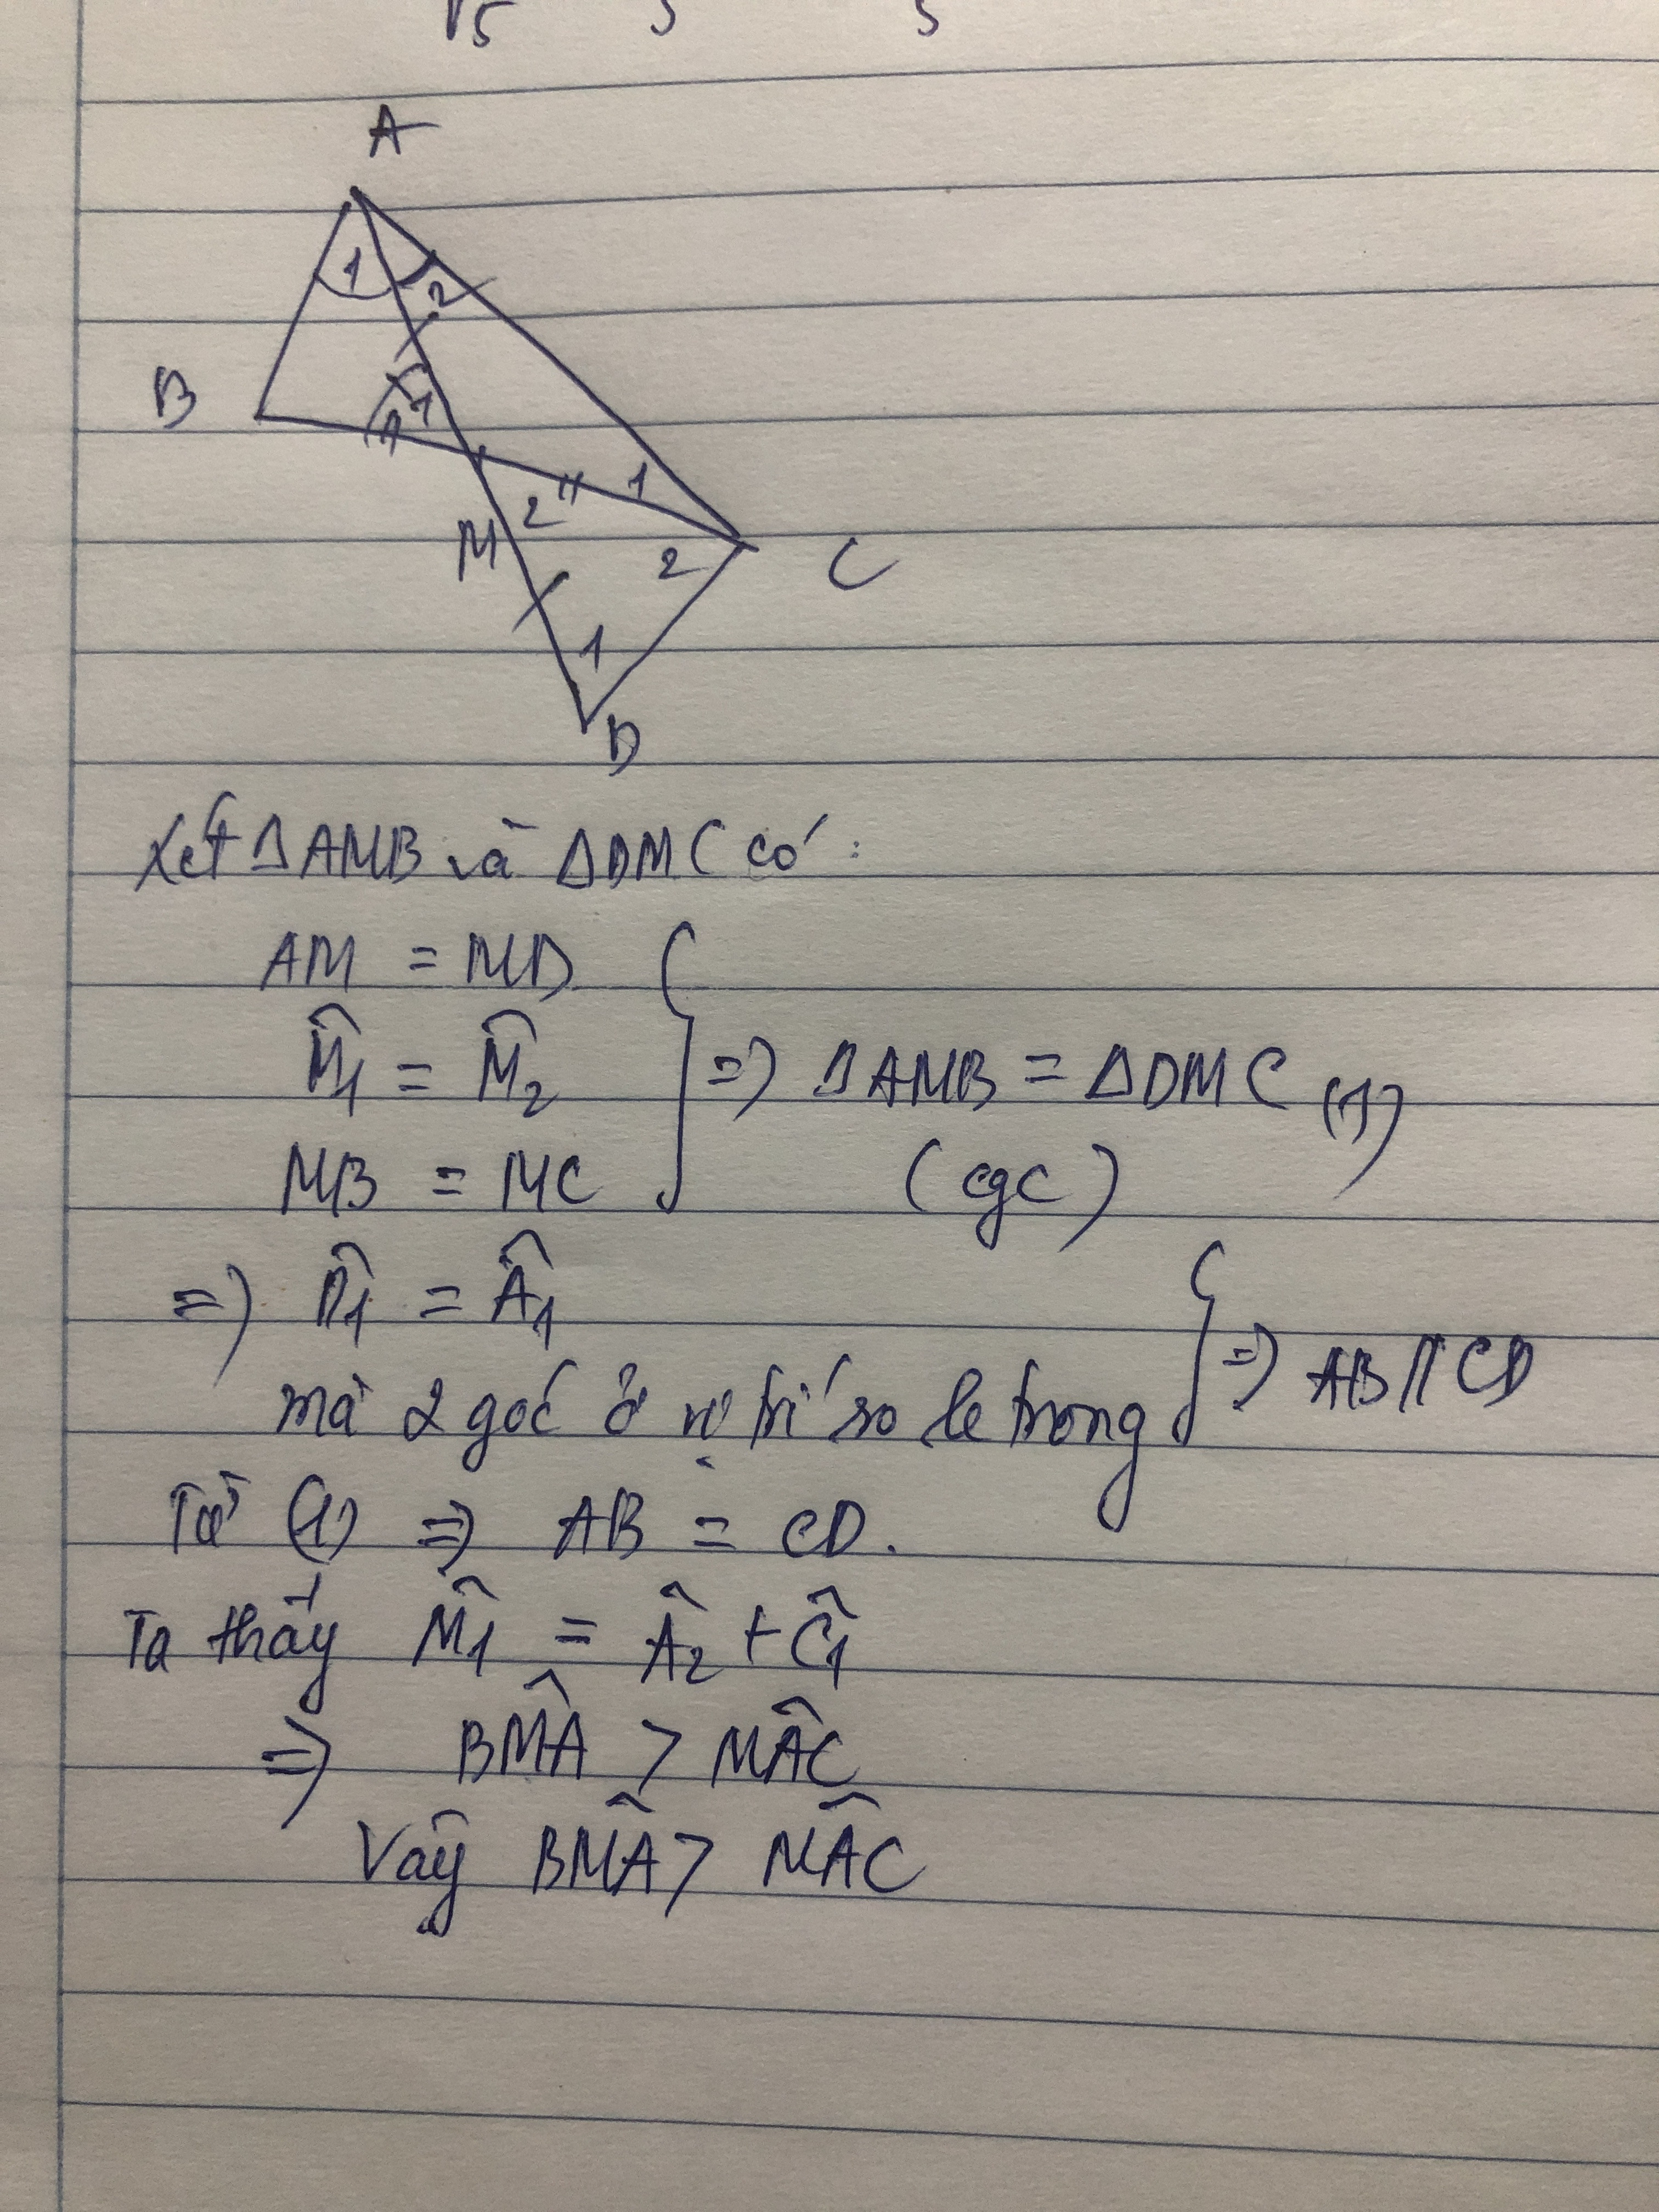 √5 5 5
A
1 2
B
1
1
2
M
2
C
1
D
Xét ΔAMB và ΔDMC có:
AM = MD
M̂1 = M̂2
=> ΔAMB = ΔDMC (1)
MB = MC
(cgc)
=> D̂1 = Â1
mà 2 góc ở vị trí so le trong
=> AB // CD
Từ (1) => AB = CD.
Ta thấy M̂1 = Â2 + Ĉ1
=> BM̂A > MÂC
Vậy BM̂A > MÂC